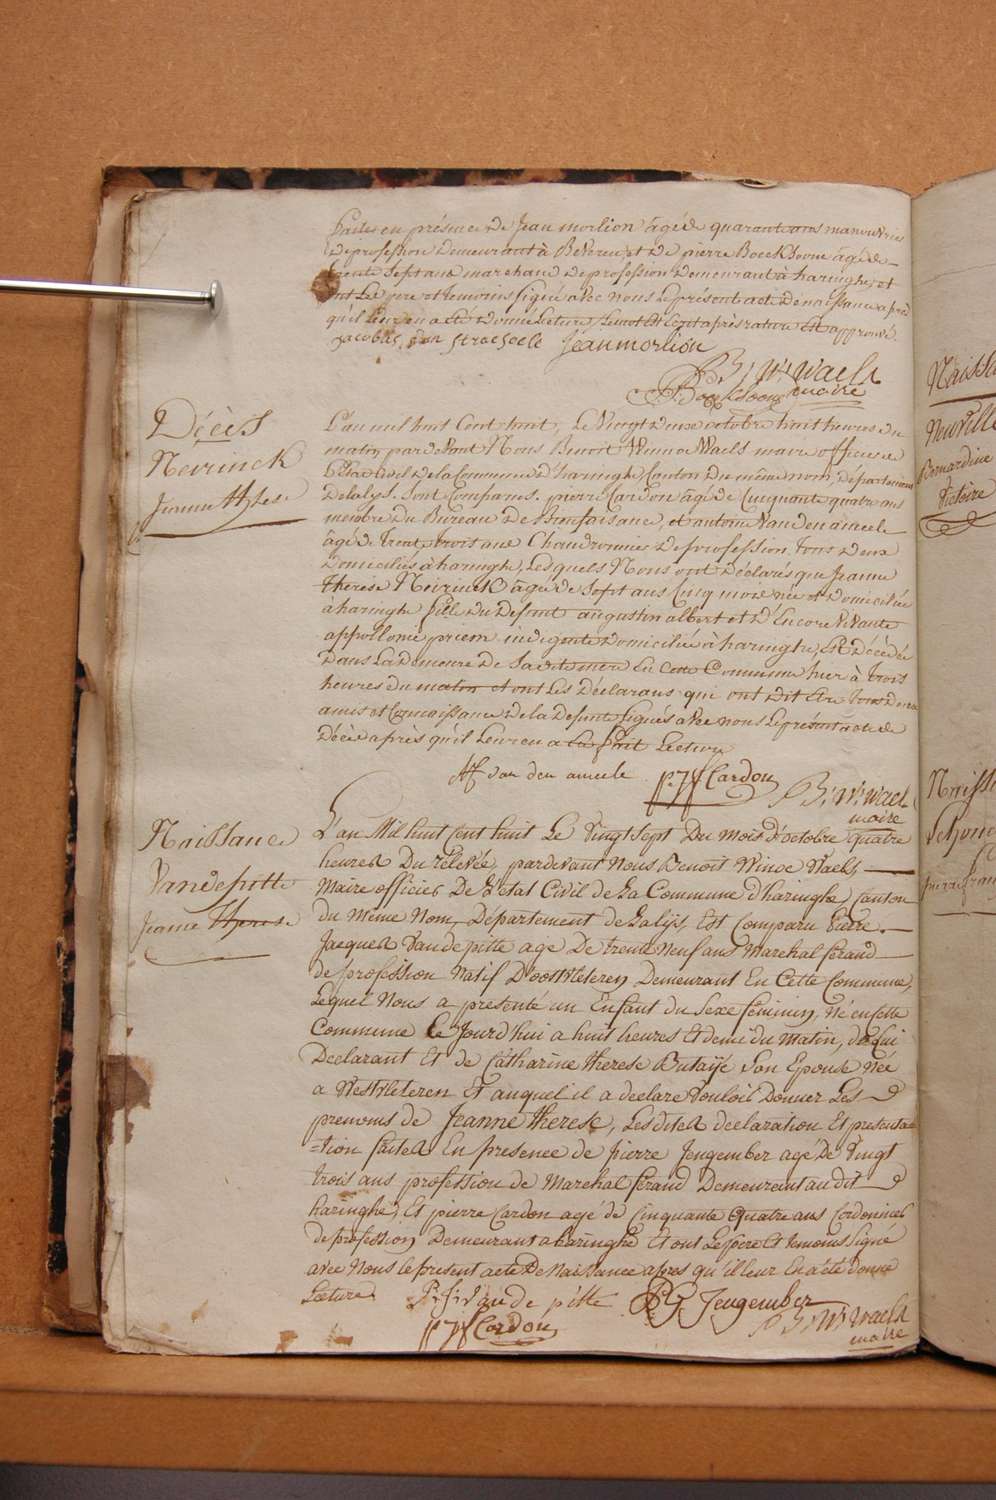 faites en présence de Jean morlion âgé de quarante ans manouvrier
de profession demeurant à Beveren, et de pierre Boeckdoone âgé de
trente sept ans marchand de profession demeurant à haringhe, et
ont Le pere et temoins signé avec nous le présent acte de naissance après
qu'il leur en a eté donné Lecture, Le mot est ecrit après rature est approuvé
jacobus van straeseele Jean morlion
B: W: Waels
P Boeckdoone maire
Décès
Nevrinck
Jeanne therese
L'an mil huit Cent huit, le vingt deux octobre huit heures du
matin par devant Nous Benoit Winnoc Waels maire officier de
l'Etat civil de la Commune d'haringhe, Canton du même nom, département
de la lys. sont Comparus. pierre Cardon âgé de Cinquante quatre ans
membre du Bureau de Bienfaisance, et antoine Vanden ameele
âgé de trente trois ans Chaudronnier de profession tous deux
domiciliés à haringhe, lesquels Nous ont déclarés que jeanne
therese Nevrinck âgée de sept ans Cinq mois née et domiciliée
à haringhe fille du defunt augustin albert et d'Encore vivante
appollonie priem indigente domiciliée à haringhe, est décédée
dans la demeure de sa dite mere en cette Commune hier à trois
heures du matin et ont les déclarans qui ont dit être tous deux
amis et Connoissance de la defunte signés avec nous le présent acte de
décès après qu'il leur en a été fait Lecture
AF van den ameele p: J: Cardon
B: W: Waels
maire
Naissance
Vandepitte
jeanne therese
L'an Mil huit cent huit Le Vingt sept Du mois d'octobre quatre
heures Du relevée, pardevant nous Benoit Winoc Waels,
Maire officier De L'etat Civil de La Commune d'haringhe, canton
du Même nom, Département de La lys, Est Comparu Pierre
Jacques Vandepitte agé De trente neuf ans Marechal ferand
de profession natif D'oostvleteren Demeurant En Cette Commune,
Lequel Nous a presenté un Enfant du sexe feminin, né en cette
Commune Ce Jourd'hui a huit heures Et demi du Matin, de lui
Declarant Et de Catharine therese Butaije son Epouse Née
a Westvleteren Et auquel il a declaré vouloir Donner Les
prenoms de Jeanne therese, Les dites declaration Et presenta
=tion faites En presence de pierre Jengember agé De Vingt
trois ans profession de Marechal ferand Demeurant au dit
haringhe, Et pierre Cardon agé de Cinquante quatre ans Cordonnier
de profession Demeurant a haringhe Et ont Le père Et temoins signé
avec nous le present acte De Naissance apres qu'il leur En a été donné
Lecture P: J: Van de pitte P J Jengember
p: J: Cardon B: W: Waels
maire
Naissa
Neuville
Bernardine
Victoire
Naiss
Schoon
pierre fran